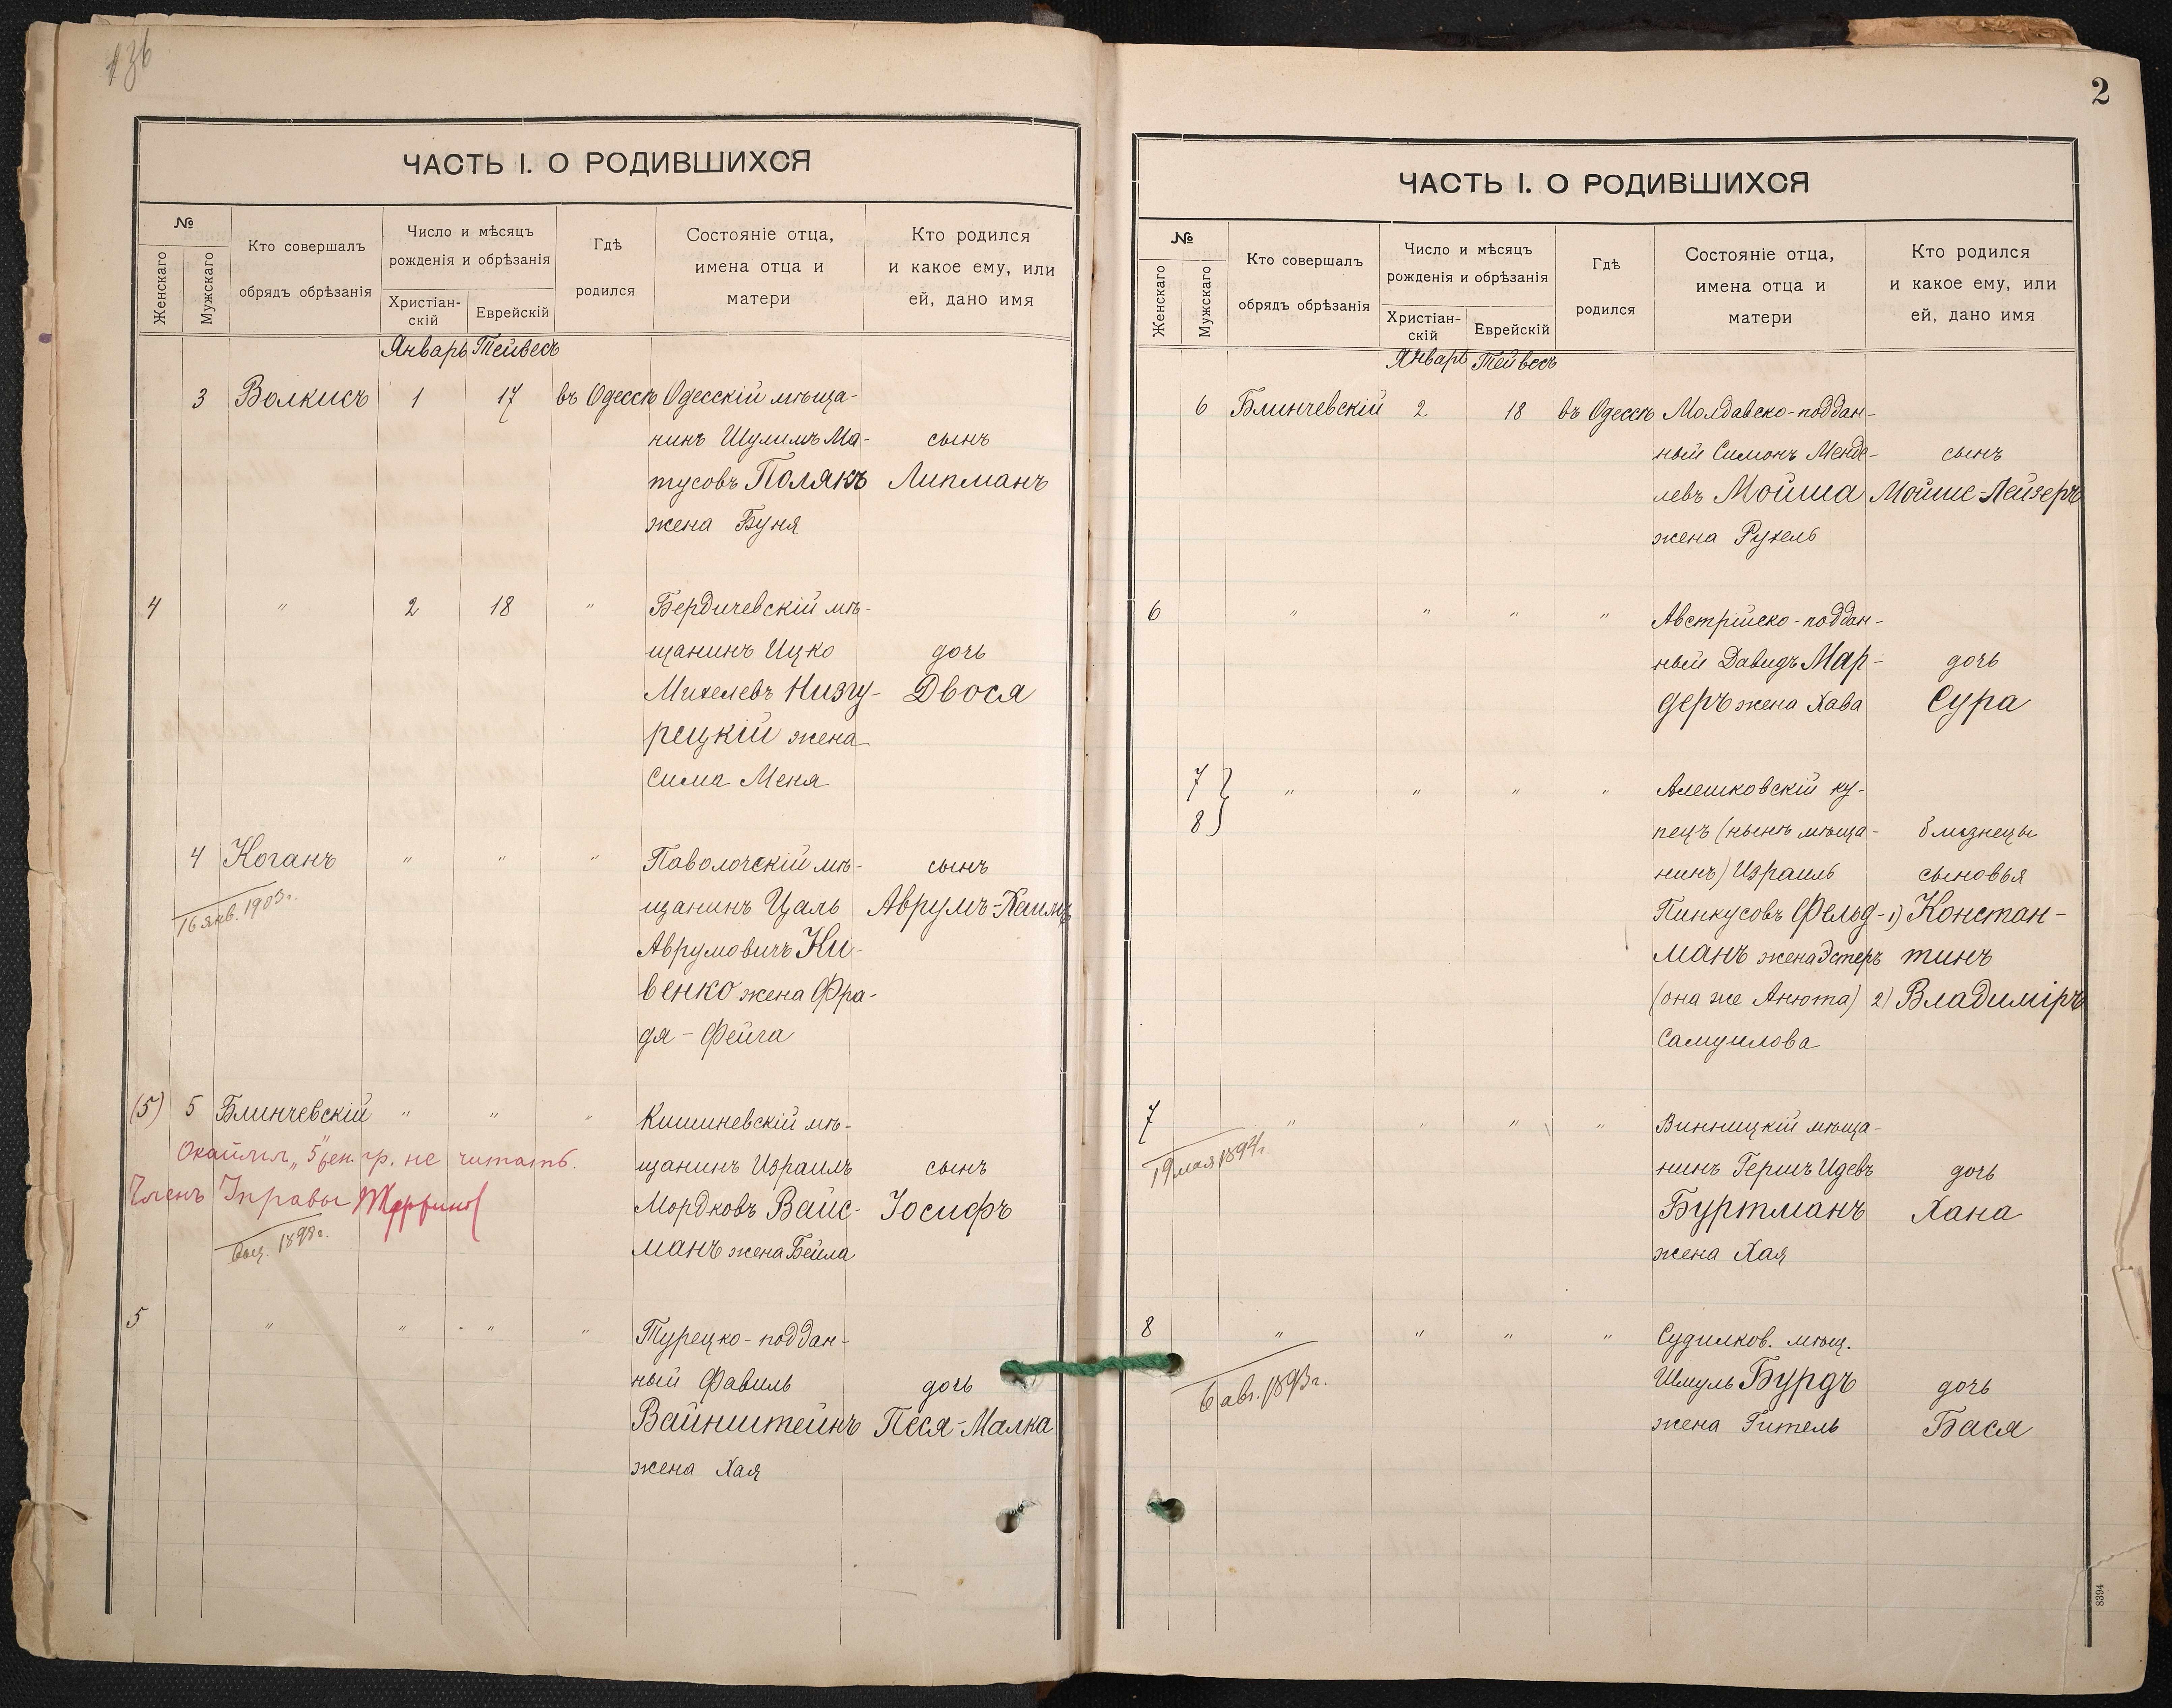 136
ЧАСТЬ I. О РОДИВШИХСЯ
№
Женскаго
Мужскаго
Кто совершалъ
обрядъ обрѣзанія
Число и мѣсяцъ
рожденія и обрѣзанія
Христіан-
скій
Еврейскій
Гдѣ
родился
Состояніе отца,
имена отца и
матери
Кто родился
и какое ему, или
ей, дано имя
Январь Тейвесъ
3 Волкисъ 1 17 въ Одессѣ Одесскій мѣща-
нинъ Шулимъ Ма- сынъ
тусовъ Полякъ Липманъ
жена Буня
4 " 2 18 " Бердичевскій мѣ-
щанинъ Ицко дочь
Михелевъ Низгу- Двося
рецкій жена
Сима Меня
4 Коганъ " " " Паволочскій мѣ- сынъ
16 янв. 1903г. щанинъ Цаль Аврумъ-Хаимъ
Аврумовичъ Ки-
венко жена Фра-
дя-Фейга
(5) 5 Блинчевскій " " " Кишиневскій мѣ-
"5" жен. гр. не читать. щанинъ Израиль сынъ
Членъ Управы Мордковъ Вайс- Іосифъ
1898г. манъ жена Бейла
5 " " " " Турецко-поддан-
ный Фавиль дочь
Вайнштейнъ Песя-Малка
жена Хая
2
ЧАСТЬ I. О РОДИВШИХСЯ
№
Женскаго
Мужскаго
Кто совершалъ
обрядъ обрѣзанія
Число и мѣсяцъ
рожденія и обрѣзанія
Христіан-
скій
Еврейскій
Гдѣ
родился
Состояніе отца,
имена отца и
матери
Кто родился
и какое ему, или
ей, дано имя
Январь Тейвесъ
6 Блинчевскій 2 18 въ Одессѣ Молдавско-поддан-
ный Симонъ Менде- сынъ
левъ Мойша Мойше-Лейзеръ
жена Рухель
6 " " " " Австрійско-поддан-
ный Давидъ Мар- дочь
деръ жена Хава Сура
7 } " " " " Алешковскій ку-
8 } пецъ (нынѣ мѣща- близнецы
нинъ) Израиль сыновья
Пинкусовъ Фельд- 1) Констан-
манъ жена Эстеръ тинъ
(она же Анюта) 2) Владиміръ
Самуилова
7 " " " " Винницкій мѣща-
19 мая 1894г. нинъ Гершъ Идевъ дочь
Буртманъ Хана
жена Хая
8 " " " " Судилков. мѣщ.
6 авг. 1893г. Шмуль Бурдъ дочь
жена Гитель Бася
8394